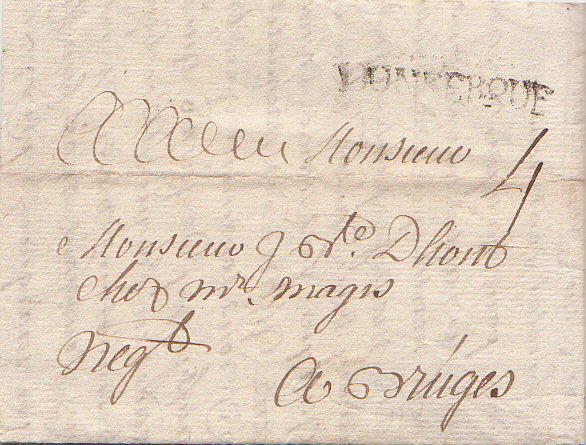 DUNKERQUE
Monsieur
4
Monsieur J Bte. Dhont
chez mr. magis
Negt
A Bruges